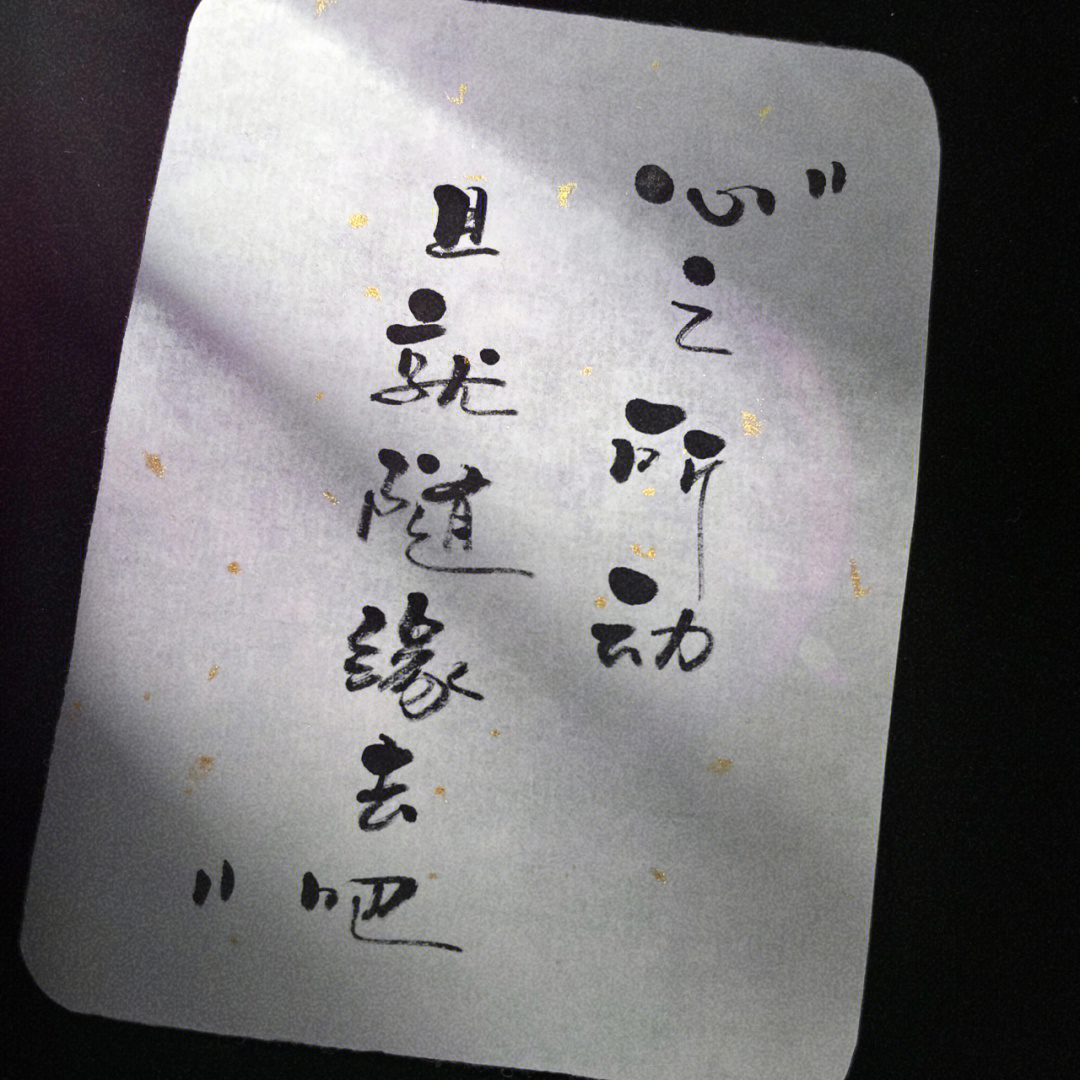 "心之所动
且就随缘去吧"